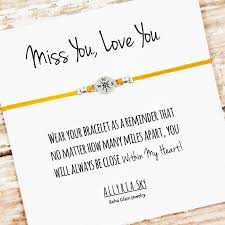 Miss You, Love You
WEAR YOUR BRACELET AS A REMINDER THAT
NO MATTER HOW MANY MILES APART, YOU
WILL ALWAYS BE CLOSE Within My Heart!
ALLYRIA SKY
Boho Glam Jewelry